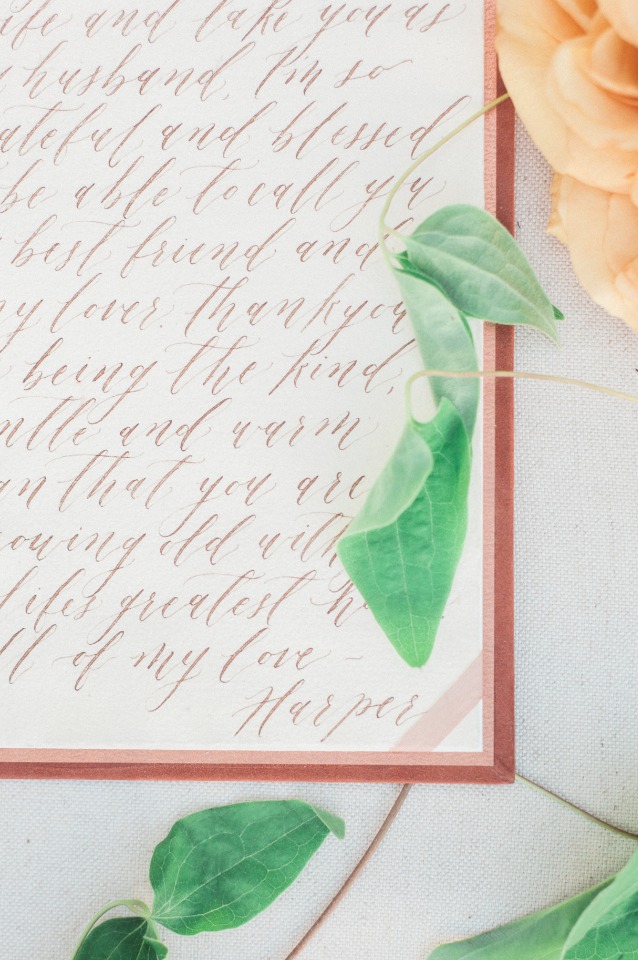 ife and take you as
husband, I'm so
ateful and blessed
be able to call you
best friend and
my lover. thank you
being the kind,
ntle and warm
an that you are
owing old with
lifes greatest
ll of my love -
Harper